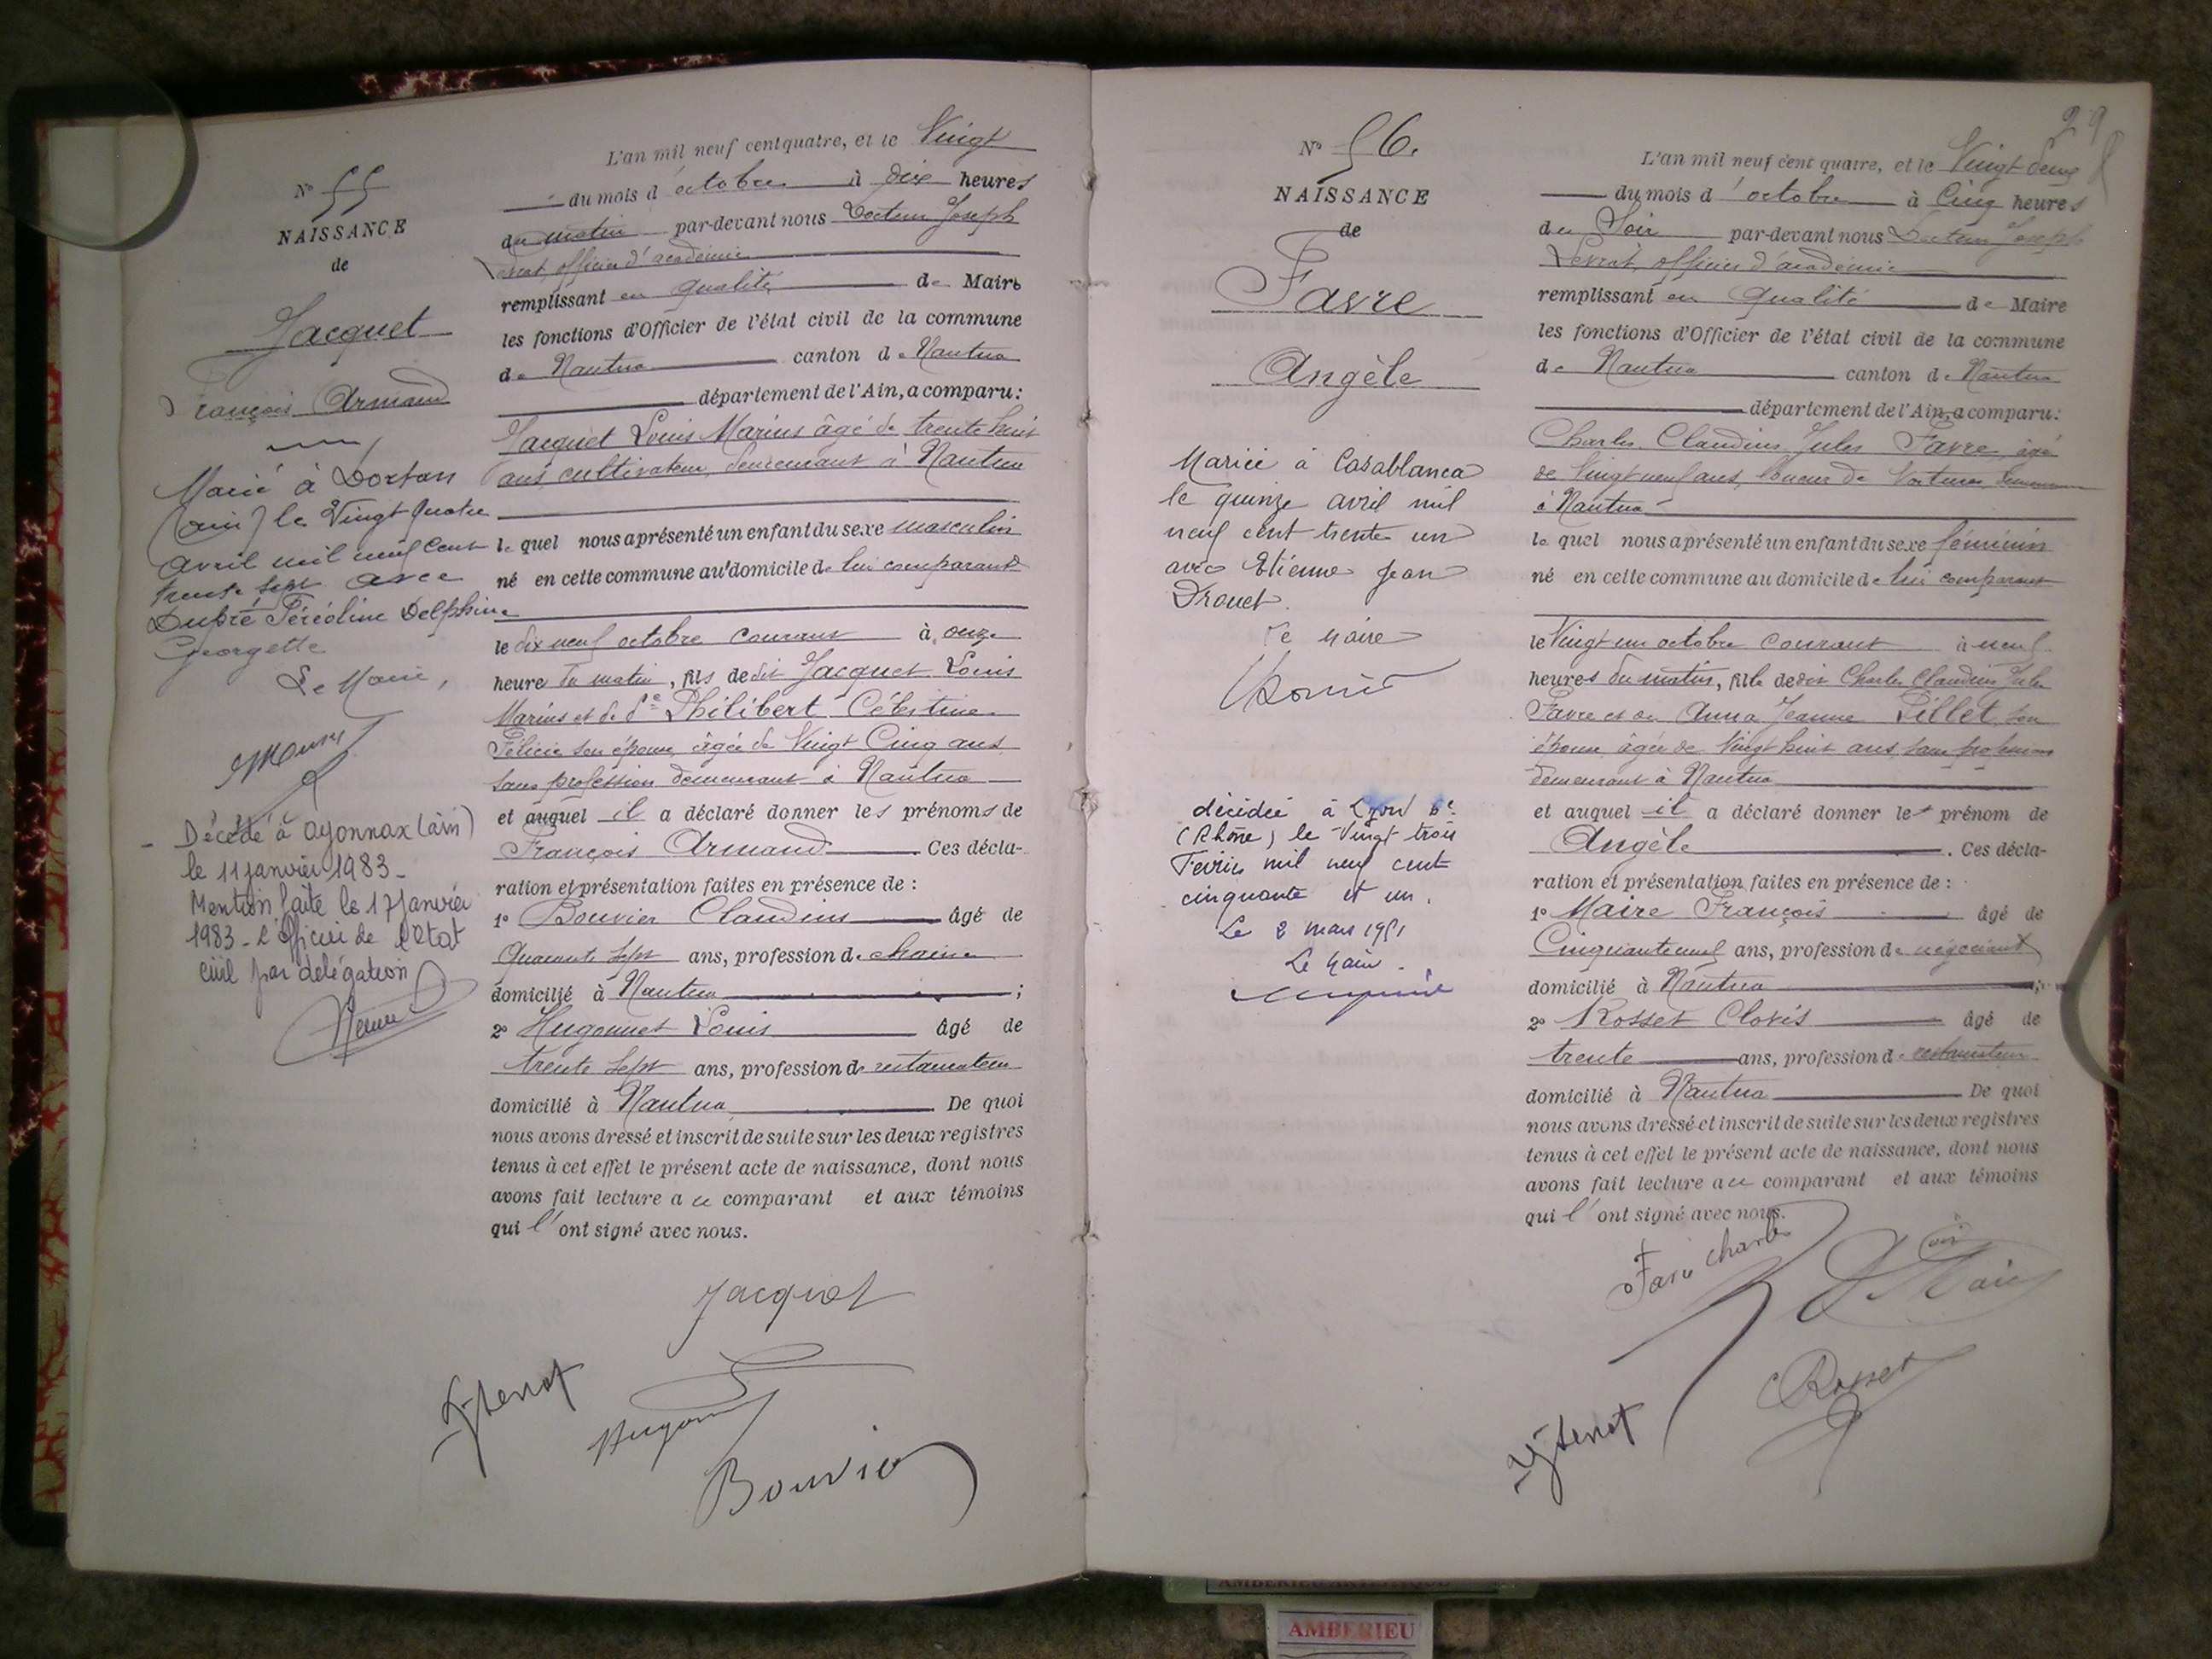 N° 55
NAISSANCE
de
Jacquet
François Armand
Marié à Dortan
(ain) le Vingt quatre
avril mil neuf cent
trente sept avec
Dupré Féréoline Delphine
Georgette
Le Maire,
Décédé à Oyonnax (ain)
le 11 janvier 1983 -
Mention faite le 17 Janvier
1983 - l'Officier de l'Etat
civil par délégation
L'an mil neuf cent quatre, et le Vingt
du mois d'octobre à dix heures
du matin par-devant nous Docteur Joseph
Levrat, officier d'académie
remplissant en qualité de Maire
les fonctions d'Officier de l'état civil de la commune
de Nantua canton de Nantua
département de l'Ain, a comparu:
Jacquet Louis Marius âgé de trente huit
ans, cultivateur, demeurant à Nantua
lequel nous a présenté un enfant du sexe masculin
né en cette commune au domicile de lui comparant
le dix neuf octobre courant à onze
heure du matin, fils de dit Jacquet Louis
Marius et de de Philibert Célestine
Félicie son épouse, âgée de Vingt Cinq ans,
sans profession demeurant à Nantua
et auquel il a déclaré donner les prénoms de
François Armand Ces décla-
ration et présentation faites en présence de :
1° Bouvier Claudius âgé de
Quarante Sept ans, profession de
domicilié à Nantua ;
2° Hugonnet Louis âgé de
trente Sept ans, profession de restaurateur
domicilié à Nantua De quoi
nous avons dressé et inscrit de suite sur les deux registres
tenus à cet effet le présent acte de naissance, dont nous
avons fait lecture a ce comparant et aux témoins
qui l'ont signé avec nous.
Jacquet
Jh Levrat
Hugonnet
Bouvier
29
N° 56.
NAISSANCE
de
Favre
Angèle
Mariée à Casablanca
le quinze avril mil
neuf cent trente un
avec Etienne Jean
Drouet.
Le Maire
décédée à Lyon 6e
(Rhône) le Vingt trois
Fevrier mil neuf cent
cinquante et un.
Le 2 mars 1951
Le Maire.
L'an mil neuf cent quatre, et le Vingt deux
du mois d'octobre à Cinq heures
du Soir par-devant nous Docteur Joseph
Levrat, officier d'académie
remplissant en qualité de Maire
les fonctions d'Officier de l'état civil de la commune
de Nantua canton de Nantua
département de l'Ain, a comparu:
Charles Claudius Jules Favre, âgé
de Vingt neuf ans, loueur de Voitures, demeurant
à Nantua
lequel nous a présenté un enfant du sexe féminin
né en cette commune au domicile de lui comparant
le Vingt un octobre courant à neuf
heures du matin, fille de dit Charles Claudius Jules
Favre et de Anna Jeanne Pillet, son
épouse âgée de Vingt huit ans, sans profession
demeurant à Nantua
et auquel il a déclaré donner le prénom de
Angèle. Ces décla-
ration et présentation faites en présence de :
1° Maire François âgé de
Cinquante neuf ans, profession de négociant
domicilié à Nantua ;
2° Rosset Clovis âgé de
trente ans, profession de restaurateur
domicilié à Nantua De quoi
nous avons dressé et inscrit de suite sur les deux registres
tenus à cet effet le présent acte de naissance, dont nous
avons fait lecture a ce comparant et aux témoins
qui l'ont signé avec nous.
Favre Charles
Maire
Rosset
Jh Levrat
AMBERIEU